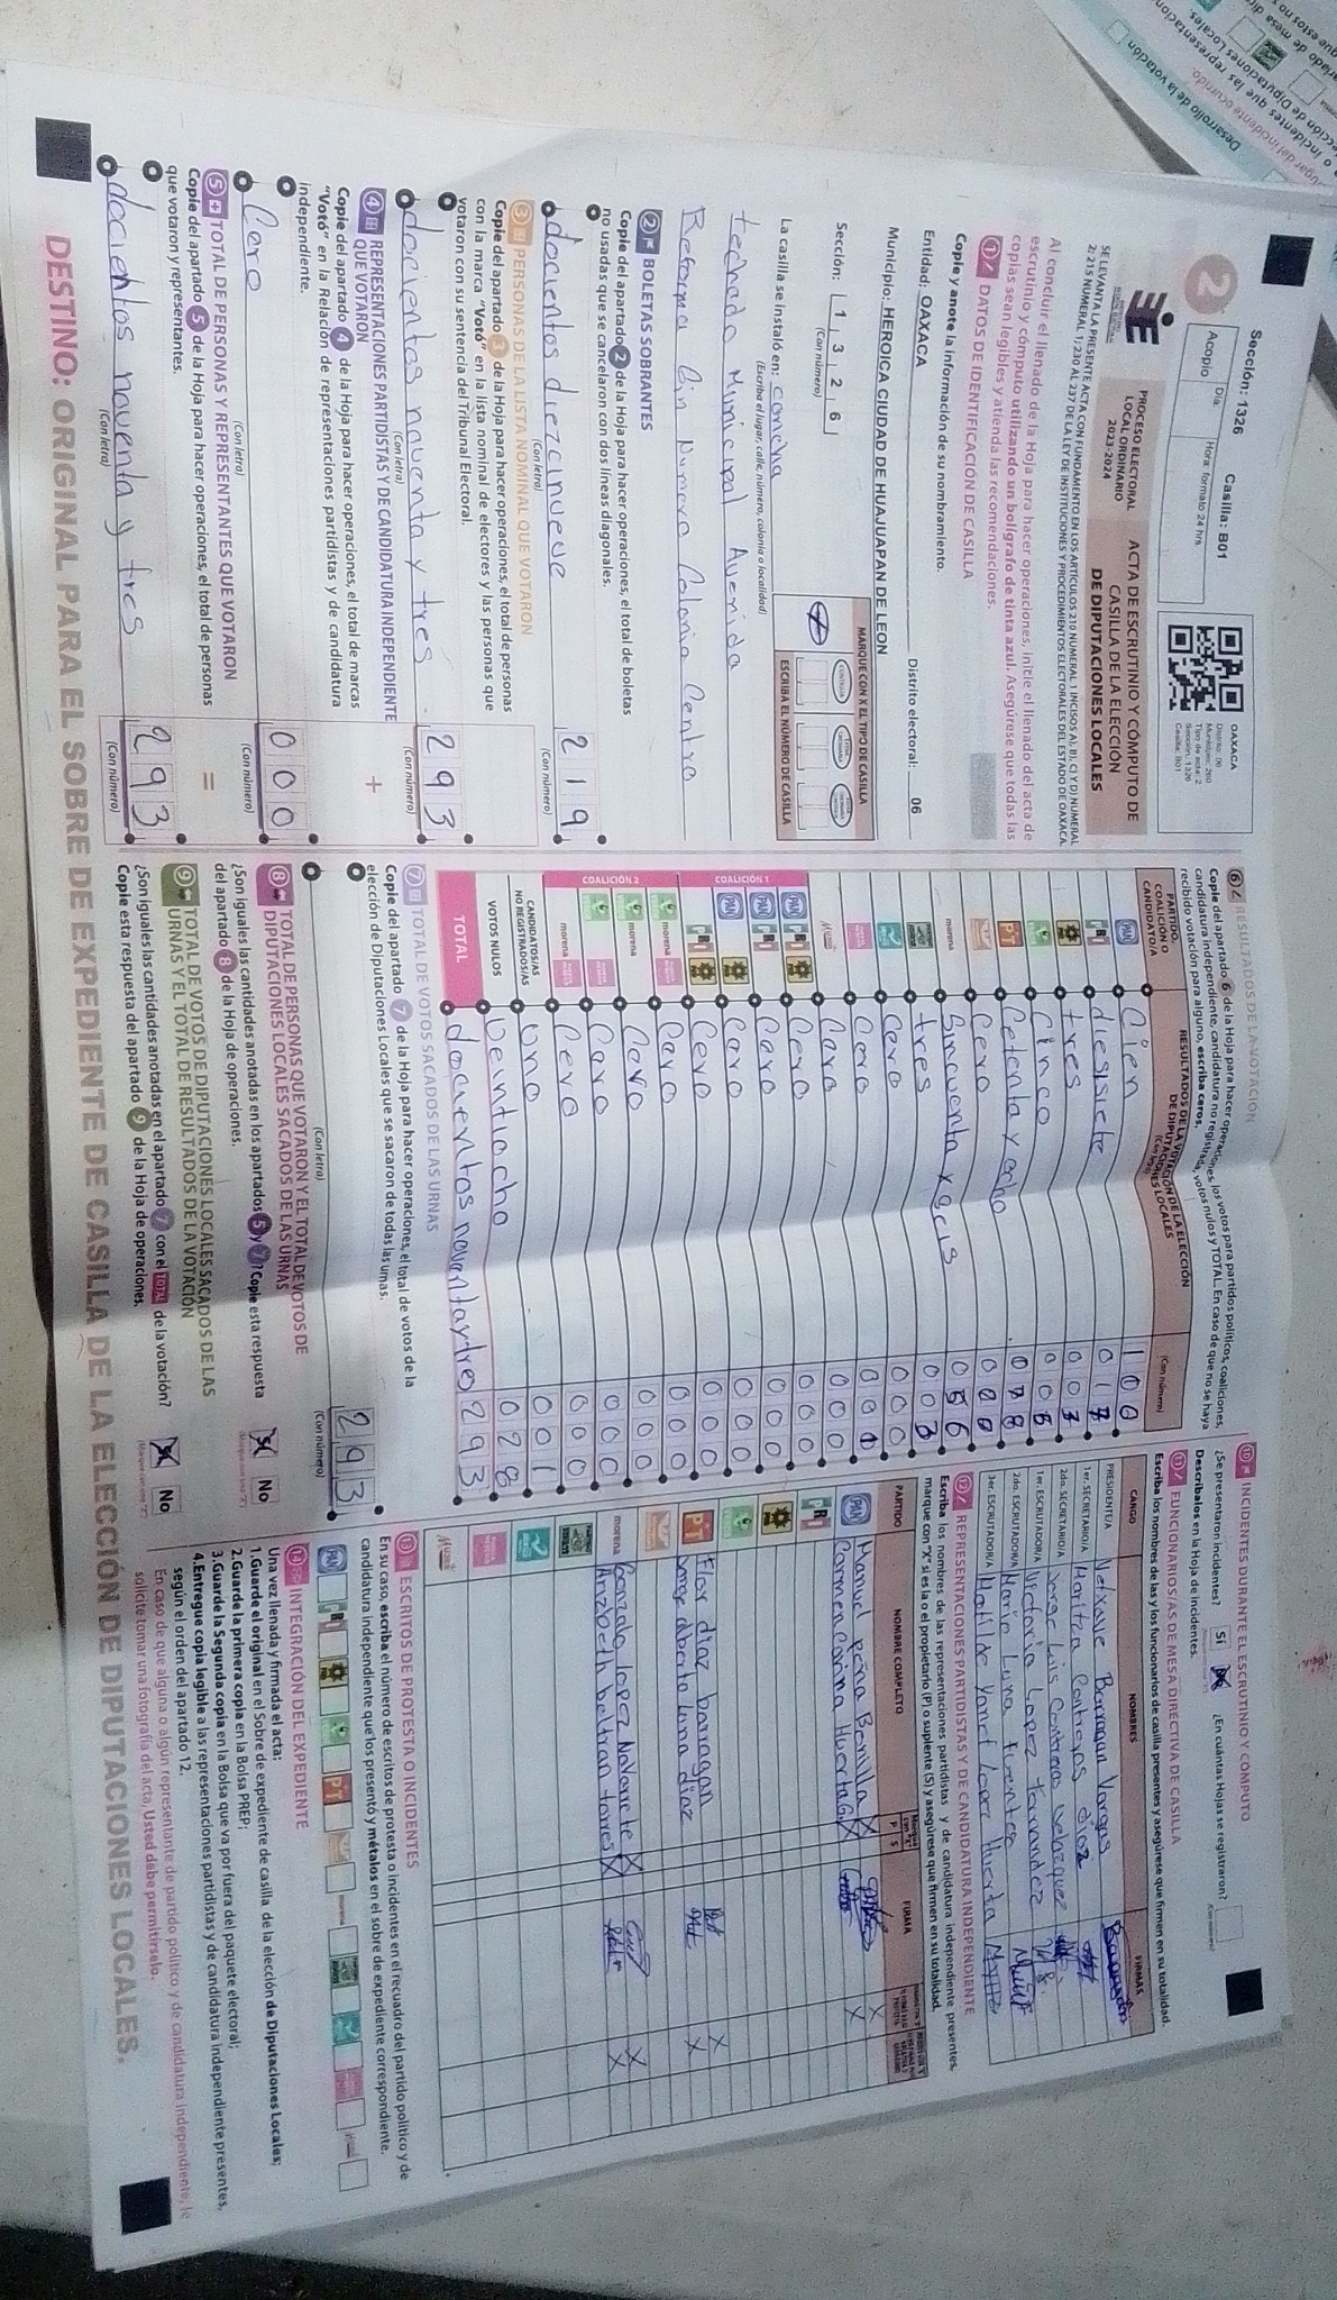 Sección: 1326 Casilla: B01
2
Acopio
Día:
Hora: formato 24 hrs
OAXACA
Distrito: 06
Municipio: 260
Tipo de acta: 2
Sección: 1326
Casilla: B01
PROCESO ELECTORAL
LOCAL ORDINARIO
2023-2024
ACTA DE ESCRUTINIO Y CÓMPUTO DE
CASILLA DE LA ELECCIÓN
DE DIPUTACIONES LOCALES
SE LEVANTA LA PRESENTE ACTA CON FUNDAMENTO EN LOS ARTÍCULOS 210 NUMERAL 1 INCISOS A), B), C) Y D) NUMERAL
2; 215 NUMERAL 1; 230 AL 237 DE LA LEY DE INSTITUCIONES Y PROCEDIMIENTOS ELECTORALES DEL ESTADO DE OAXACA.
Al concluir el llenado de la Hoja para hacer operaciones, inicie el llenado del acta de
escrutinio y cómputo utilizando un bolígrafo de tinta azul. Asegúrese que todas las
copias sean legibles y atienda las recomendaciones.
1 DATOS DE IDENTIFICACIÓN DE CASILLA
Copie y anote la información de su nombramiento.
Entidad: OAXACA Distrito electoral: 06
Municipio: HEROICA CIUDAD DE HUAJUAPAN DE LEON
Sección: 1 3 2 6
(Con número)
MARQUE CON X EL TIPO DE CASILLA
ESCRIBA EL NÚMERO DE CASILLA
La casilla se instaló en: concha
(Escriba el lugar, calle, número, colonia o localidad)
techado Municipal Avenida
Reforma Sin Numero Colonia Centro
2 BOLETAS SOBRANTES
Copie del apartado 2 de la Hoja para hacer operaciones, el total de boletas
no usadas que se cancelaron con dos líneas diagonales.
docientos diezcinueve 2 1 9
(Con letra) (Con número)
3 PERSONAS DE LA LISTA NOMINAL QUE VOTARON
Copie del apartado 3 de la Hoja para hacer operaciones, el total de personas
con la marca "Votó" en la lista nominal de electores y las personas que
votaron con su sentencia del Tribunal Electoral.
docientos noventa y tres 2 9 3
(Con letra) (Con número)
4 REPRESENTACIONES PARTIDISTAS Y DE CANDIDATURA INDEPENDIENTE
QUE VOTARON +
Copie del apartado 4 de la Hoja para hacer operaciones, el total de marcas
"Votó" en la Relación de representaciones partidistas y de candidatura
independiente.
Cero 0 0 0
(Con letra) (Con número)
5 TOTAL DE PERSONAS Y REPRESENTANTES QUE VOTARON =
Copie del apartado 5 de la Hoja para hacer operaciones, el total de personas
que votaron y representantes.
docientos noventa y tres 2 9 3
(Con letra) (Con número)
6 RESULTADOS DE LA VOTACIÓN
Copie del apartado 6 de la Hoja para hacer operaciones, los votos para partidos políticos, coaliciones,
candidatura independiente, candidatura no registrada, votos nulos y TOTAL. En caso de que no se haya
recibido votación para alguno, escriba ceros.
PARTIDO,
COALICIÓN O
CANDIDATO/A
RESULTADOS DE LA VOTACIÓN DE LA ELECCIÓN
DE DIPUTACIONES LOCALES
(Con letra)
(Con número)
PAN Cien 1 0 0
PRI diesisiete 0 1 7
PRD tres 0 0 3
Cinco 0 0 5
PT Cetenta y ocho 0 7 8
Cero 0 0 0
morena Sincuenta y seis 0 5 6
tres 0 0 3
Cero 0 0 0
Cero 0 0 0
Cero 0 0 0
COALICIÓN 1
PAN PRI PRD Cero 0 0 0
PAN PRI Cero 0 0 0
PAN PRD Cero 0 0 0
PRI PRD Cero 0 0 0
COALICIÓN 2
morena Cero 0 0 0
morena Cero 0 0 0
Cero 0 0 0
morena Cero 0 0 0
CANDIDATOS/AS
NO REGISTRADOS/AS Uno 0 0 1
VOTOS NULOS Veintiocho 0 2 8
TOTAL docientos noventaytres 2 9 3
7 TOTAL DE VOTOS SACADOS DE LAS URNAS
Copie del apartado 7 de la Hoja para hacer operaciones, el total de votos de la
elección de Diputaciones Locales que se sacaron de todas las urnas.
2 9 3
(Con letra) (Con número)
8 TOTAL DE PERSONAS QUE VOTARON Y EL TOTAL DE VOTOS DE
DIPUTACIONES LOCALES SACADOS DE LAS URNAS
¿Son iguales las cantidades anotadas en los apartados 5 y 7? Copie esta respuesta
del apartado 8 de la Hoja de operaciones.
Sí No
9 TOTAL DE VOTOS DE DIPUTACIONES LOCALES SACADOS DE LAS
URNAS Y EL TOTAL DE RESULTADOS DE LA VOTACIÓN
¿Son iguales las cantidades anotadas en el apartado 7 con el TOTAL de la votación?
Copie esta respuesta del apartado 9 de la Hoja de operaciones.
Sí No
10 INCIDENTES DURANTE EL ESCRUTINIO Y CÓMPUTO
¿Se presentaron incidentes? Sí No ¿En cuántas Hojas se registraron?
Descríbalos en la Hoja de incidentes.
11 FUNCIONARIOS/AS DE MESA DIRECTIVA DE CASILLA
Escriba los nombres de las y los funcionarios de casilla presentes y asegúrese que firmen en su totalidad.
CARGO NOMBRES FIRMAS
PRESIDENTE/A Barragan Vargas
1er. SECRETARIO/A Maritza Contreras diaz
2do. SECRETARIO/A Jorge Luis Contreras Velazquez
1er. ESCRUTADOR/A Victoria Lopez Fernandez
2do. ESCRUTADOR/A Maria Luna Fuentes
3er. ESCRUTADOR/A Matilde Yanet Lopez Huerta
12 REPRESENTACIONES PARTIDISTAS Y DE CANDIDATURA INDEPENDIENTE
Escriba los nombres de las representaciones partidistas y de candidatura independiente presentes,
marque con "X" si es la o el propietario (P) o suplente (S) y asegúrese que firmen en su totalidad.
PARTIDO NOMBRE COMPLETO P S FIRMA
PAN Manuel peña Bonilla X X
Carmen Corina Huerta G. X X
PRI
PT Flor diaz barragan X
Jorge alberto luna diaz X
morena Gonzalo lopez Navarrete X X
Anzbeth beltran torres X X
13 ESCRITOS DE PROTESTA O INCIDENTES
En su caso, escriba el número de escritos de protesta o incidentes en el recuadro del partido político y de
candidatura independiente que los presentó y métalos en el sobre de expediente correspondiente.
14 INTEGRACIÓN DEL EXPEDIENTE
Una vez llenada y firmada el acta:
1.Guarde el original en el Sobre de expediente de casilla de la elección de Diputaciones Locales;
2.Guarde la primera copia en la Bolsa PREP;
3.Guarde la Segunda copia en la Bolsa que va por fuera del paquete electoral;
4.Entregue copia legible a las representaciones partidistas y de candidatura independiente presentes,
según el orden del apartado 12.
En caso de que alguna o algún representante de partido político y de candidatura independiente, le
solicite tomar una fotografía del acta, Usted debe permitírselo.
DESTINO: ORIGINAL PARA EL SOBRE DE EXPEDIENTE DE CASILLA DE LA ELECCIÓN DE DIPUTACIONES LOCALES.